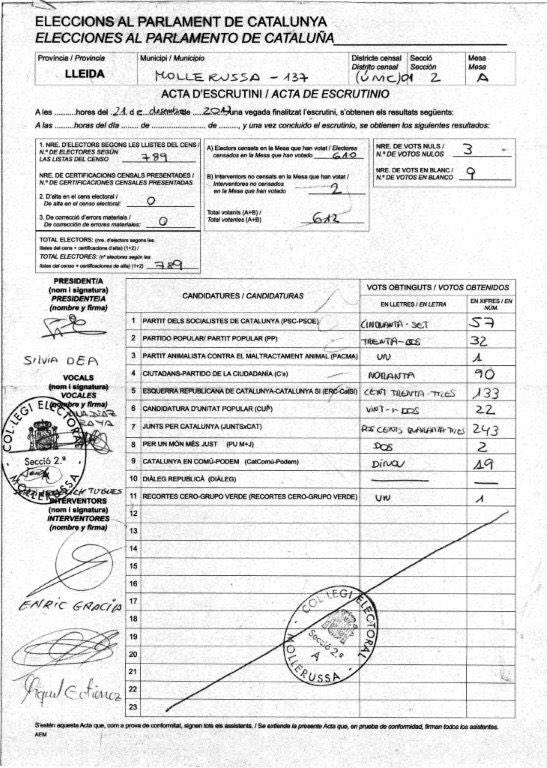 ELECCIONS AL PARLAMENT DE CATALUNYA
ELECCIONES AL PARLAMENTO DE CATALUÑA
Província / Provincia
LLEIDA
Municipi / Municipio
MOLLERUSSA - 137
Districte censal
Distrito censal
(ÚNIC) 01
Secció
Sección
2
Mesa
Mesa
A
ACTA D'ESCRUTINI / ACTA DE ESCRUTINIO
A les ..........hores del 21 de desembre de 2017 una vegada finalitzat l'escrutini, s'obtenen els resultats següents:
A las ..........horas del día ....... de .................... de ........., y una vez concluido el escrutinio, se obtienen los siguientes resultados:
1. NRE. D'ELECTORS SEGONS LES LLISTES DEL CENS /
N.º DE ELECTORES SEGÚN
LAS LISTAS DEL CENSO
789
NRE. DE CERTIFICACIONS CENSALS PRESENTADES /
N.º DE CERTIFICACIONES CENSALES PRESENTADAS
2. D'alta en el cens electoral /
De alta en el censo electoral:
0
3. De correcció d'errors materials /
De corrección de errores materiales:
0
TOTAL ELECTORS: (nre. d'electors segons les
llistes del cens + certificacions d'alta) (1+2) /
TOTAL ELECTORES: (nº electores según las
listas del censo + certificaciones de alta) (1+2)
789
A) Electors censats en la Mesa que han votat / Electores
censados en la Mesa que han votado
610
B) Interventors no censats en la Mesa que han votat /
Interventores no censados
en la Mesa que han votado
2
Total votants (A+B) /
Total votantes (A+B)
612
NRE. DE VOTS NULS /
N.º DE VOTOS NULOS
3
NRE. DE VOTS EN BLANC /
N.º DE VOTOS EN BLANCO
9
PRESIDENT/A
(nom i signatura)
PRESIDENTE/A
(nombre y firma)
SILVIA DEA
VOCALS
(nom i signatura)
VOCALES
(nombre y firma)
COL·LEGI ELECTORAL
Secció 2.ª
MOLLERUSSA
INTERVENTORS
(nom i signatura)
INTERVENTORES
(nombre y firma)
ENRIC GRACIA
Miquel Gutiérrez
CANDIDATURES / CANDIDATURAS
VOTS OBTINGUTS / VOTOS OBTENIDOS
EN LLETRES / EN LETRA
EN XIFRES / EN NÚM.
1 PARTIT DELS SOCIALISTES DE CATALUNYA (PSC-PSOE) CINQUANTA-SET 57
2 PARTIT POPULAR/ PARTIT POPULAR (PP) TRENTA-DOS 32
3 PARTIT ANIMALISTA CONTRA EL MALTRACTAMENT ANIMAL (PACMA) UN 1
4 CIUTADANS-PARTIDO DE LA CIUDADANÍA (C's) NORANTA 90
5 ESQUERRA REPUBLICANA DE CATALUNYA-CATALUNYA SÍ (ERC-CatSí) CENT TRENTA-TRES 133
6 CANDIDATURA D'UNITAT POPULAR (CUP) VINT-I-DOS 22
7 JUNTS PER CATALUNYA (JUNTSxCAT) DOS CENTS QUARANTA-TRES 243
8 PER UN MÓN MÉS JUST (PU M+J) DOS 2
9 CATALUNYA EN COMÚ-PODEM (CatComú-Podem) DINOU 19
10 DIÀLEG REPUBLICÀ (DIÀLEG)
11 RECORTES CERO-GRUPO VERDE (RECORTES CERO-GRUPO VERDE) UN 1
12
13
14
15
16
17
18
19
20
21
22
23
COL·LEGI ELECTORAL
Secció 2.ª
A
MOLLERUSSA
S'estén aquesta Acta que, com a prova de conformitat, signen tots els assistents. / Se extiende la presente Acta que, en prueba de conformidad, firman todos los asistentes.
AEM